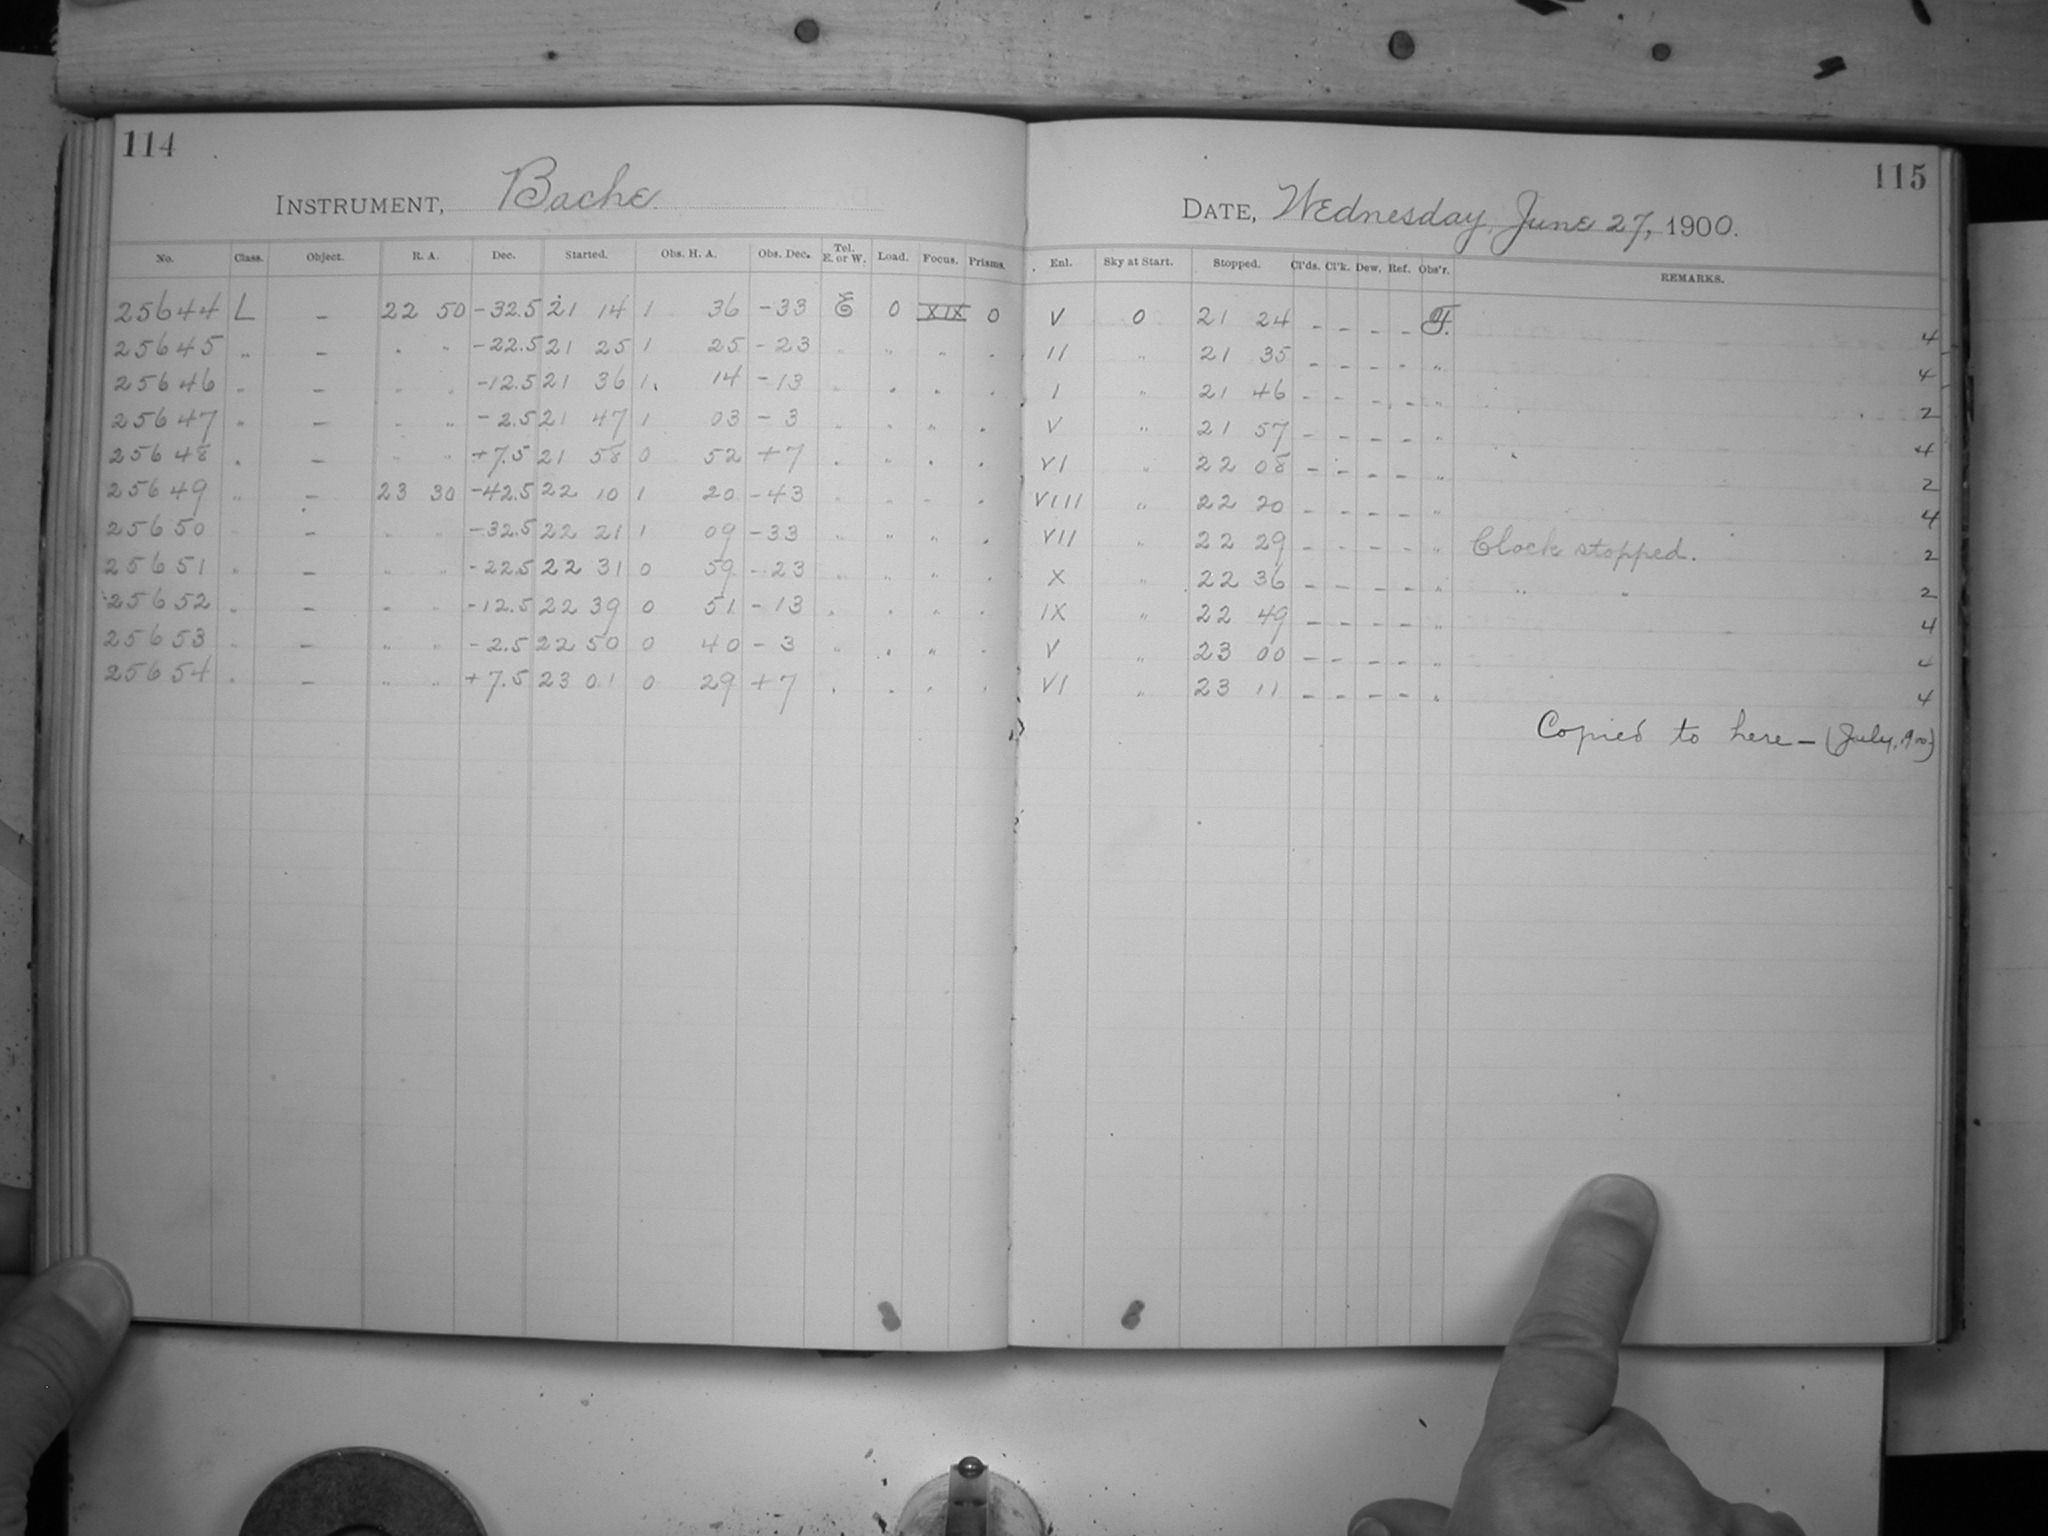 114
INSTRUMENT, Bache
No. Class. Object. R. A. Dec. Started. Obs. H. A. Obs. Dec. Tel. E. or W. Load. Focus. Prisms.
25644 L – 22 50 -32.5 21 14 1 36 -33 E 0 XIX 0
25645 " – " " -22.5 21 25 1 25 -23 " " " "
25646 " – " " -12.5 21 36 1 14 -13 " " " "
25647 " – " " -2.5 21 47 1 03 -3 " " " "
25648 " – " " +7.5 21 58 0 52 +7 " " " "
25649 " – 23 30 -42.5 22 10 1 20 -43 " " " "
25650 " – " " -32.5 22 21 1 09 -33 " " " "
25651 " – " " -22.5 22 31 0 59 -23 " " " "
25652 " – " " -12.5 22 39 0 51 -13 " " " "
25653 " – " " -2.5 22 50 0 40 -3 " " " "
25654 " – " " +7.5 23 01 0 29 +7 " " " "
115
DATE, Wednesday, June 27, 1900.
Enl. Sky at Start. Stopped. Cl'ds. Cl'k. Dew. Ref. Obs'r. REMARKS.
V 0 21 24 – – – – F. 4
II " 21 35 – – – – " 4
I " 21 46 – – – – " 2
V " 21 57 – – – – " 4
VI " 22 08 – – – – " 2
VIII " 22 20 – – – – " 4
VII " 22 29 – – – – " Clock stopped. 2
X " 22 36 – – – – " " " 2
IX " 22 49 – – – – " 4
V " 23 00 – – – – " 4
VI " 23 11 – – – – " 4
Copied to here – (July,